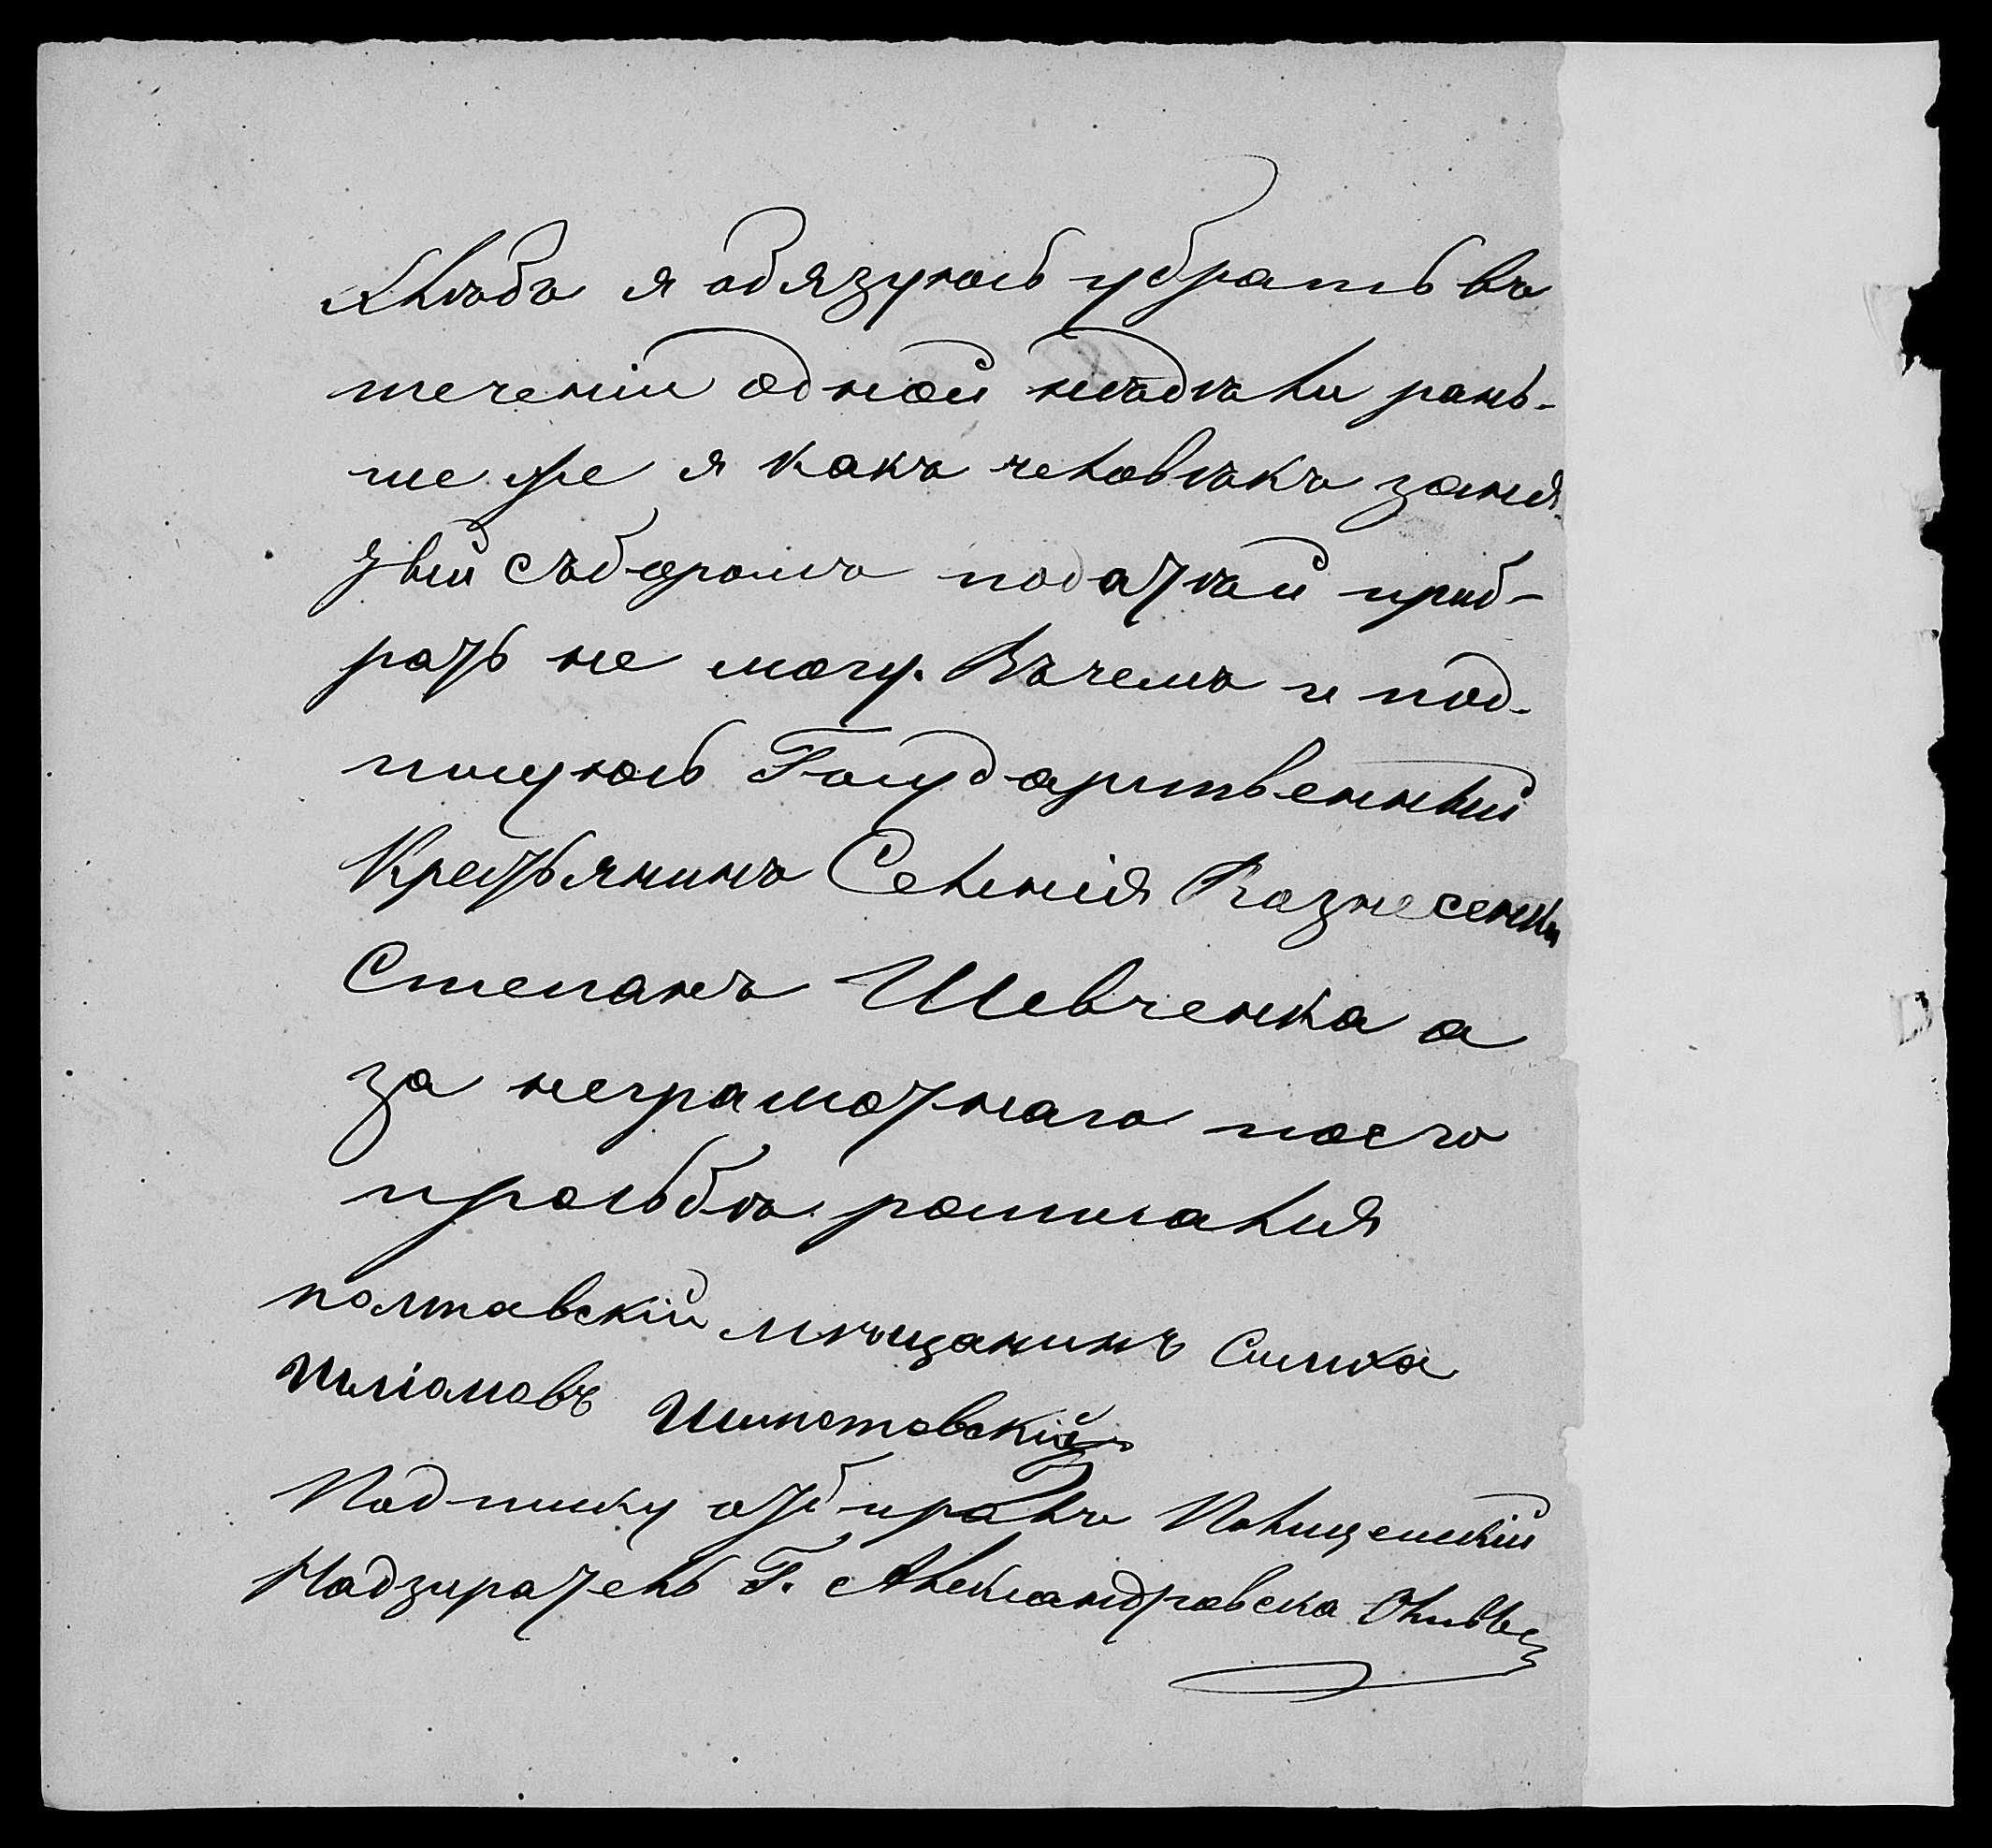 хлѣбъ я обязуюсь убрать въ
теченіи одной нѣдѣли рань-
ше же я какъ человѣкъ заня
тый сѣборомъ податѣй приб-
рать не могу. Въ чемъ и под-
писуюсь Государственный
Крестьянинъ Селенія Вознесенки
Степанъ Шевченка а
за неграмотнаго по его
прозьбѣ росписался
полтавскій мѣщанинъ Симха
Шипотовскій
Подписку отбиралъ Полицейскій
Надзиратель Г. Александровска